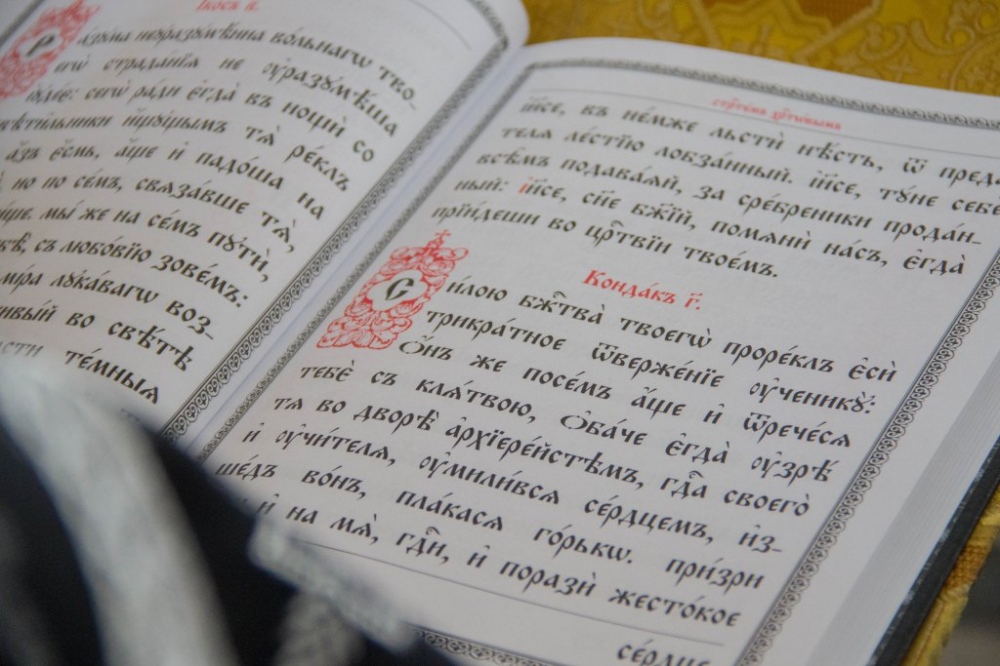 І҆́косъ в҃.
Разꙋма неꙋразꙋмѣ́нна во́льнагѡ тво-
страда́нїѧ не ᲂу҆разꙋмѣ́ша
сегѡ̀ ра́ди є҆гда̀ въ нощѝ со
свѣти́льники и҆́щꙋщымъ тѧ̀ ре́клъ
а҆́зъ є҆́смь, а҆́ще и҆ падо́ша на
но по се́мъ, свѧза́вше тѧ̀,
мы́ же на се́мъ пꙋтѝ,
съ любо́вїю зове́мъ:
мі́ра лꙋка́вагѡ воз-
во свѣ́тѣ
те́мныѧ
стрⷭ҇те́мъ хрⷭ҇то́вымъ
і҆и҃се, въ не́мже льстѝ нѣ́сть, ѿ преда-
телѧ ле́стїю лобза́нный. і҆и҃се, тꙋ́не себѐ
всѣ̑мъ подава́ѧй, за сре́бреники прода́н-
ный: і҆и҃се, сн҃е бж҃їй, помѧнѝ на́съ, є҆гда̀
прїи́деши во црⷭ҇твїи твое́мъ.
Конда́къ г҃.
Си́лою бжⷭ҇тва̀ твоегѡ̀ проре́клъ є҆сѝ
трикра́тное ѿверже́нїе ᲂу҆ченикꙋ̀:
Ѻ҆́нъ же посе́мъ а҆́ще и҆ ѿрече́сѧ
тебѐ съ клѧ́твою, Ѻ҆ба́че є҆гда̀ ᲂу҆зрѣ̀
тѧ во дворѣ̀ а҆рхїере́йстѣмъ, гдⷭ҇а своего̀
и҆ ᲂу҆чи́телѧ, ᲂу҆мили́всѧ се́рдцемъ, и҆з-
ше́дъ во́нъ, пла́касѧ го́рькѡ. при́зри
и҆ на мѧ̀, гдⷭ҇и, и҆ поразѝ жесто́кое
се́рдце